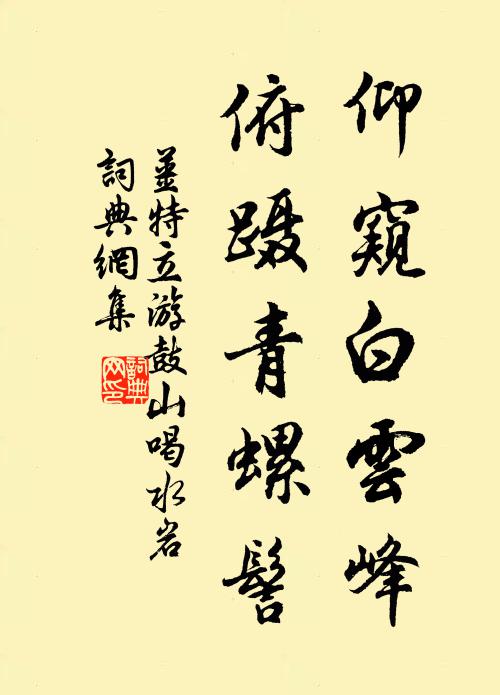 仰窺白雲峰
俯蹑青螺髻
姜特立游鼓山喝水岩
詞典網集
詞典網印